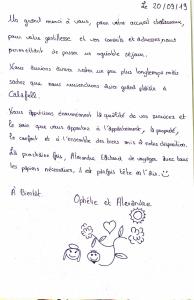 Le 20/09/19
Un grand merci à vous, pour votre accueil chaleureux,
pour votre gentillesse et vos conseils et adresses nous
permettant de passer un agréable séjour.
Nous aurions aimés rester un peu plus longtemps mais
sachez que nous reviendrons avec grand plaisir à
Calafell.
Nous apprécions énormément la qualité de vos services et
le soin que vous apportez à l'appartement, la propreté,
le confort et à l'ensemble des biens mis à notre disposition.
La prochaine fois, Alexandre de voyager avec tous
les papiers nécessaires, il est parfois tête en l'air.
À Bientôt
Ophélie et Alexandre